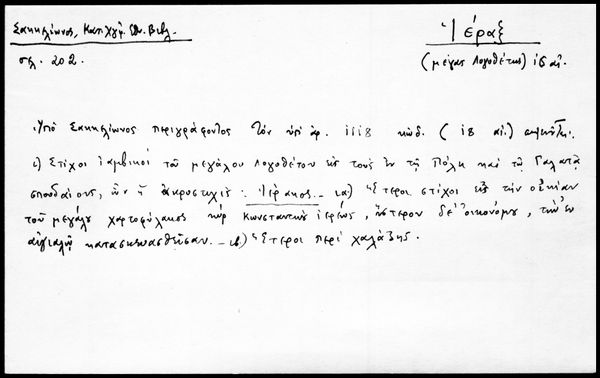 Σακκελίωνος, Κατάλγ. Ἐθν. Βιβλ.
σελ. 202.
Ἱέραξ
(μέγας Λογοθέτης) ις αἰ.
Ὑπὸ Σακκελίωνος περιγράφοντος τὸν ὑπ' ἀρ. 1118 κώδ. (ιβ αἰ.)
ι) Στίχοι ἰαμβικοὶ τοῦ μεγάλου Λογοθέτου εἰς τοὺς ἐν τῇ Πόλει καὶ τῷ Γαλατᾷ
σπουδαίους, ὧν ἡ ἀκροστιχίς: Ἱέρακος. – ια) Ἕτεροι στίχοι εἰς τὴν οἰκίαν
τοῦ μεγάλου χαρτοφύλακος κὺρ Κωνσταντίνου ἱερέως, ὕστερον δὲ οἰκονόμου, τὴν ἐν
αἰγιαλῷ κατασκευασθεῖσαν. – ιβ) Ἕτεροι περὶ χαλάζης.